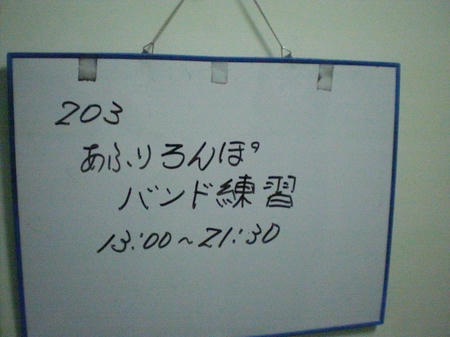 203
あふりろんぽ
バンド練習
13:00~21:30